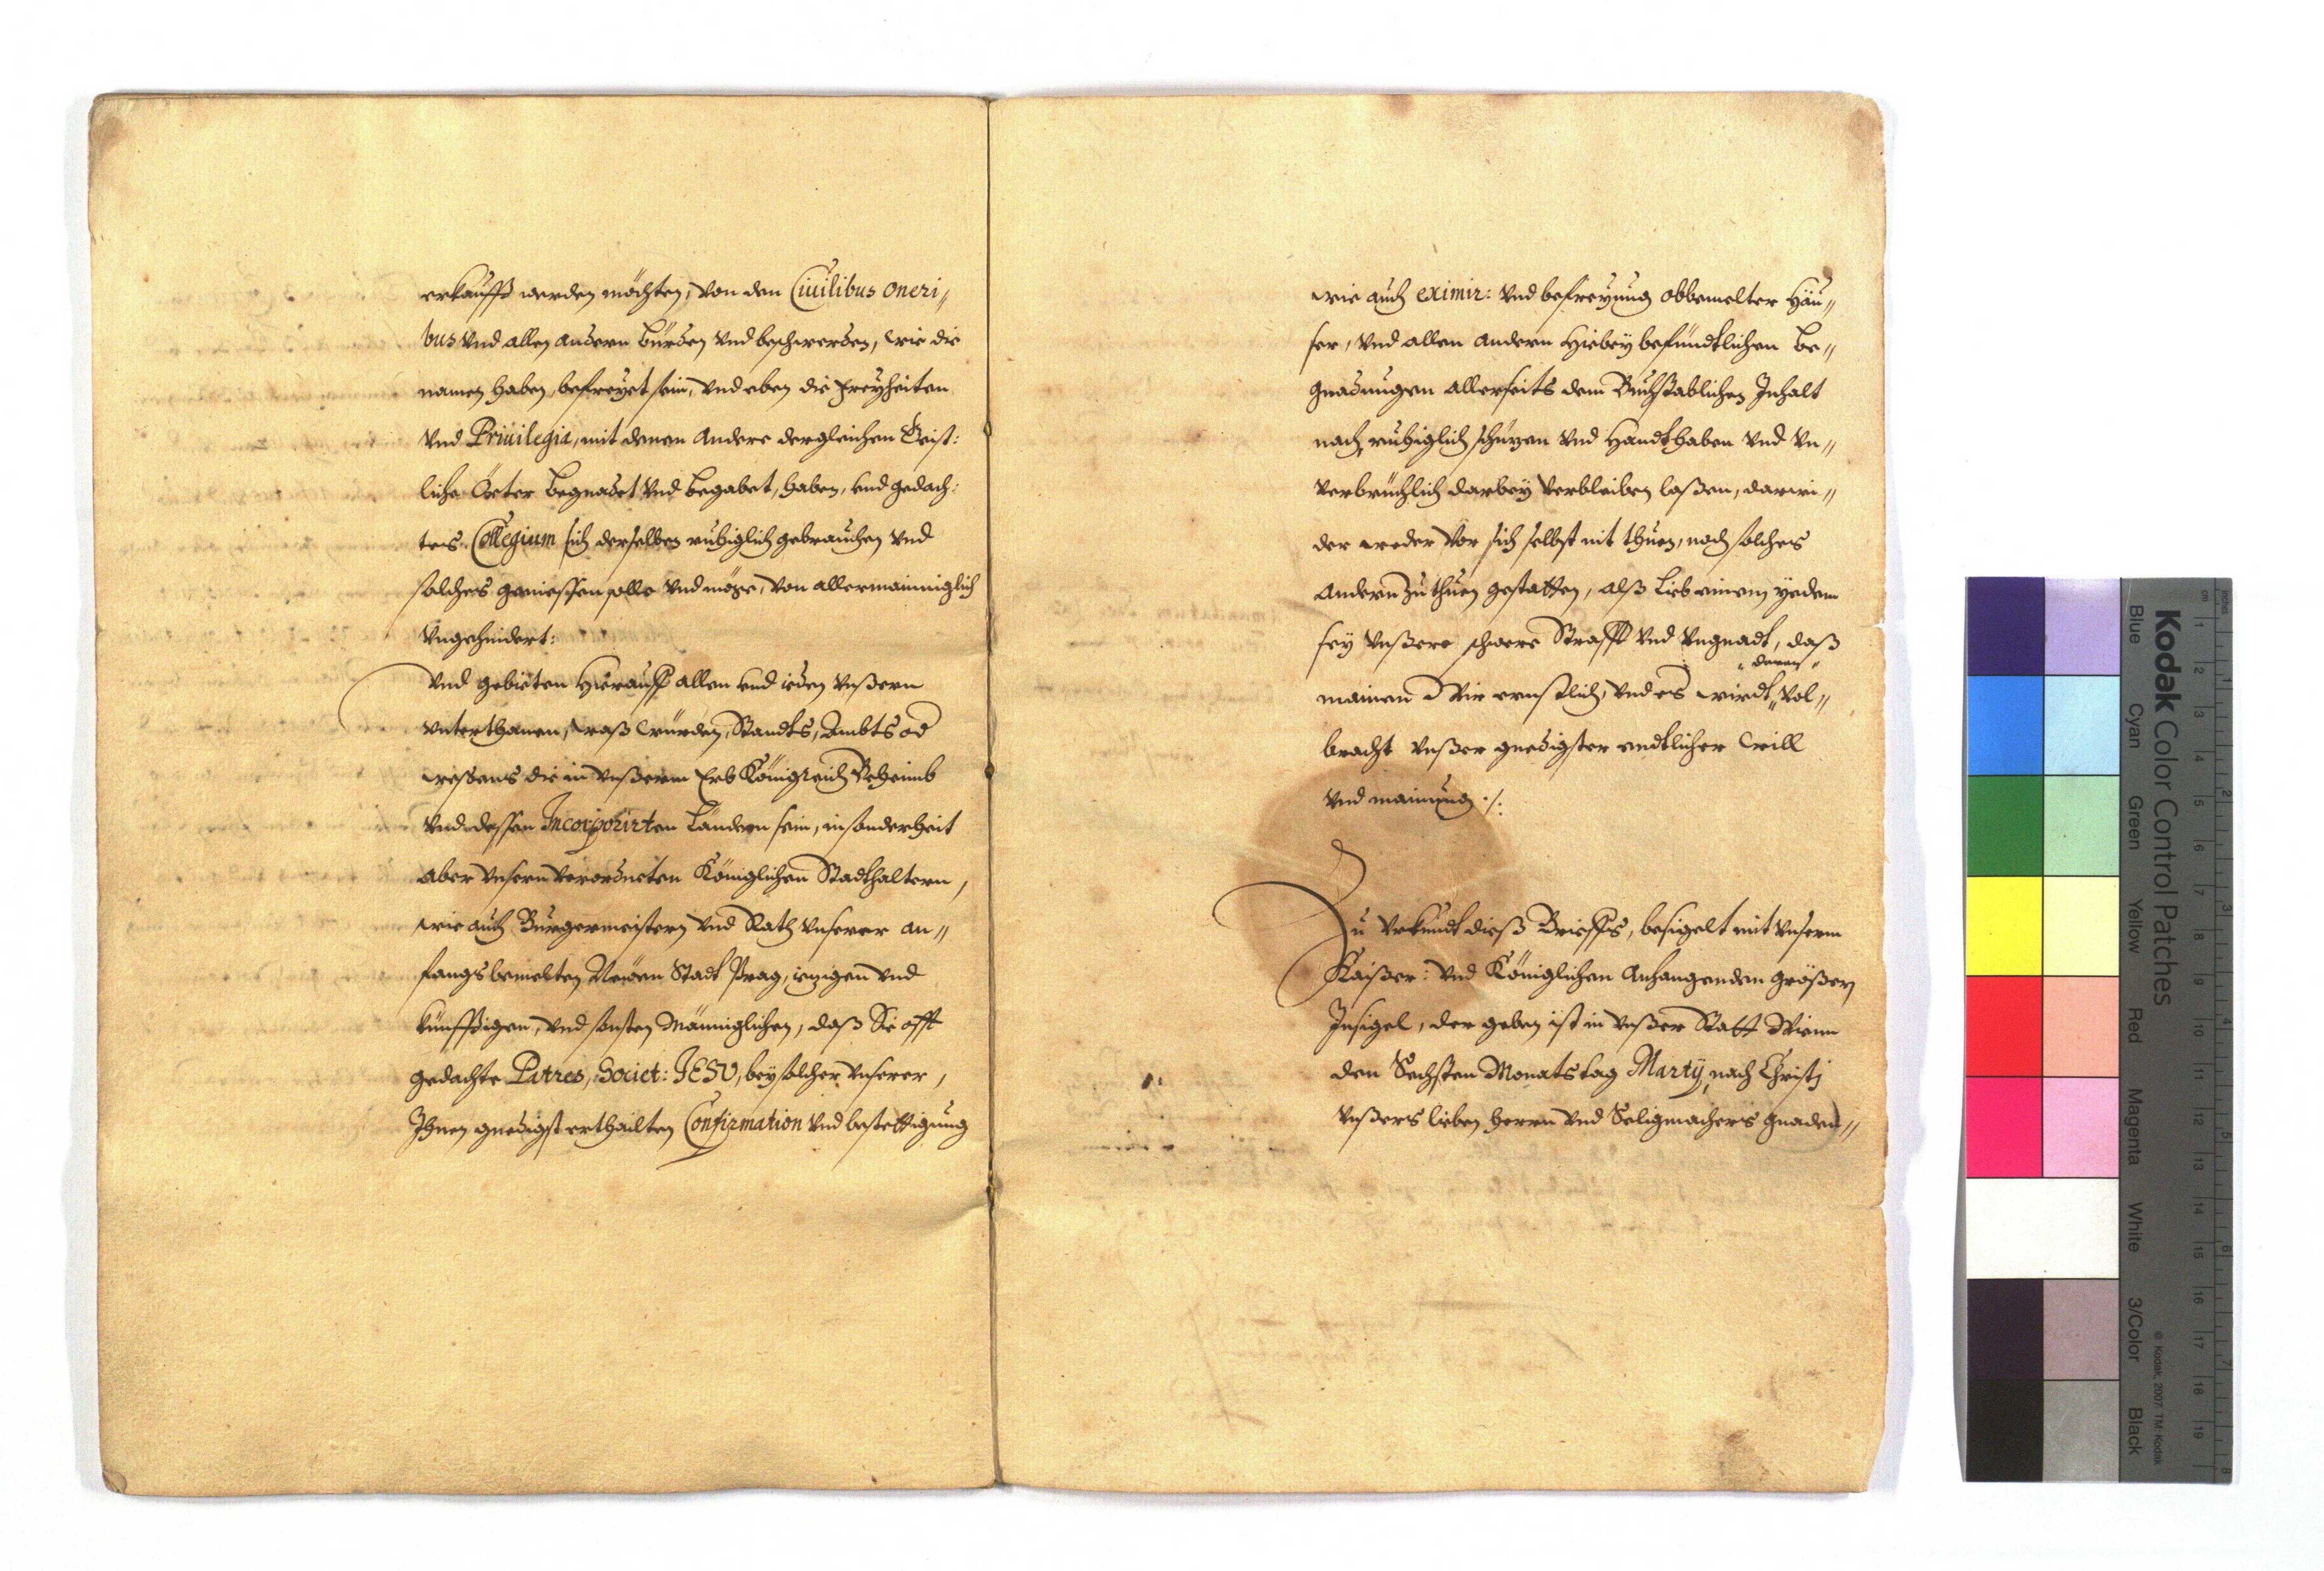 erkaufft werden möchten, von den Ciuilibus oneri„
bus vnd allen andern bürden vnd beschwerden, wie die
namen haben, befreyet sein, vnd eben die freyheiten
vnd Priuilegia, mit denen andere dergleichen Geist:
liche Örter begnadet vnd begabet, haben, vnd gedach:
tes Collegium sich derselben ruhiglich gebrauchen vnd
solches geniessen solle vnd möge, von allermainniglich
vngehindert:
Vnd gebieten hierauff allen vnd ieden vnßern
vnterthanen, waß würden, Standts, Ambts od
wesens die in vnßerm Erb Königreich Beheimb
vnd dessen Incorporirten Ländern sein, insonderheit
aber vnsern verordneten Königlichen Stadthaltern,
wie auch Burgermeistern vnd Rath vnserer an„
fangs bemelten Neüen Stadt Prag, ietzigen vnd
künfftigen, vnd sonsten Männiglichen, daß Sie offt
gedachte Patres, Societ: JESV, bey solcher vnserer,
Ihnen gnedigst erthailten Confirmation vnd bestettigung
wie auch eximir: vnd befreyung obbemelter Häu„
ser, vnd allen andern hiebey befündtlichen be„
gnadungen allerseits dem Buchstablichen Inhalt
nach, ruhiglich schützen vnd handthaben vnd vn„
verbrüchlich darbey verbleiben laßen, darwi„
der weder vor sich selbst nit thuen, noch solches
andern zu thuen gestatten, alß lieb einem yedem
sey vnßere schwere Straff vnd vngnadt, daß
„daran„
mainen Wir ernstlich, vnd es wirdt„ vol„
bracht vnßer gnedigster endtlicher will
vnd mainung ./.
Zu Vrkundt dieß Brieffs, besigelt mit vnserm
Kaißer: vnd Königlichen anhangendem größern
Insigel, der geben ist in vnßer Statt Wienn
den Sechsten Monatstag Martÿ, nach Christj
vnßers lieben herrn vnd Seligmachers gnaden„
Kodak Color Control Patches
Blue
Cyan
Green
Yellow
Red
Magenta
White
3/Color
Black
© Kodak, 2007 TM: Kodak
inches
cm
1
2
3
4
5
6
7
8
9
10
11
12
13
14
15
16
17
18
19
1
2
3
4
5
6
7
8